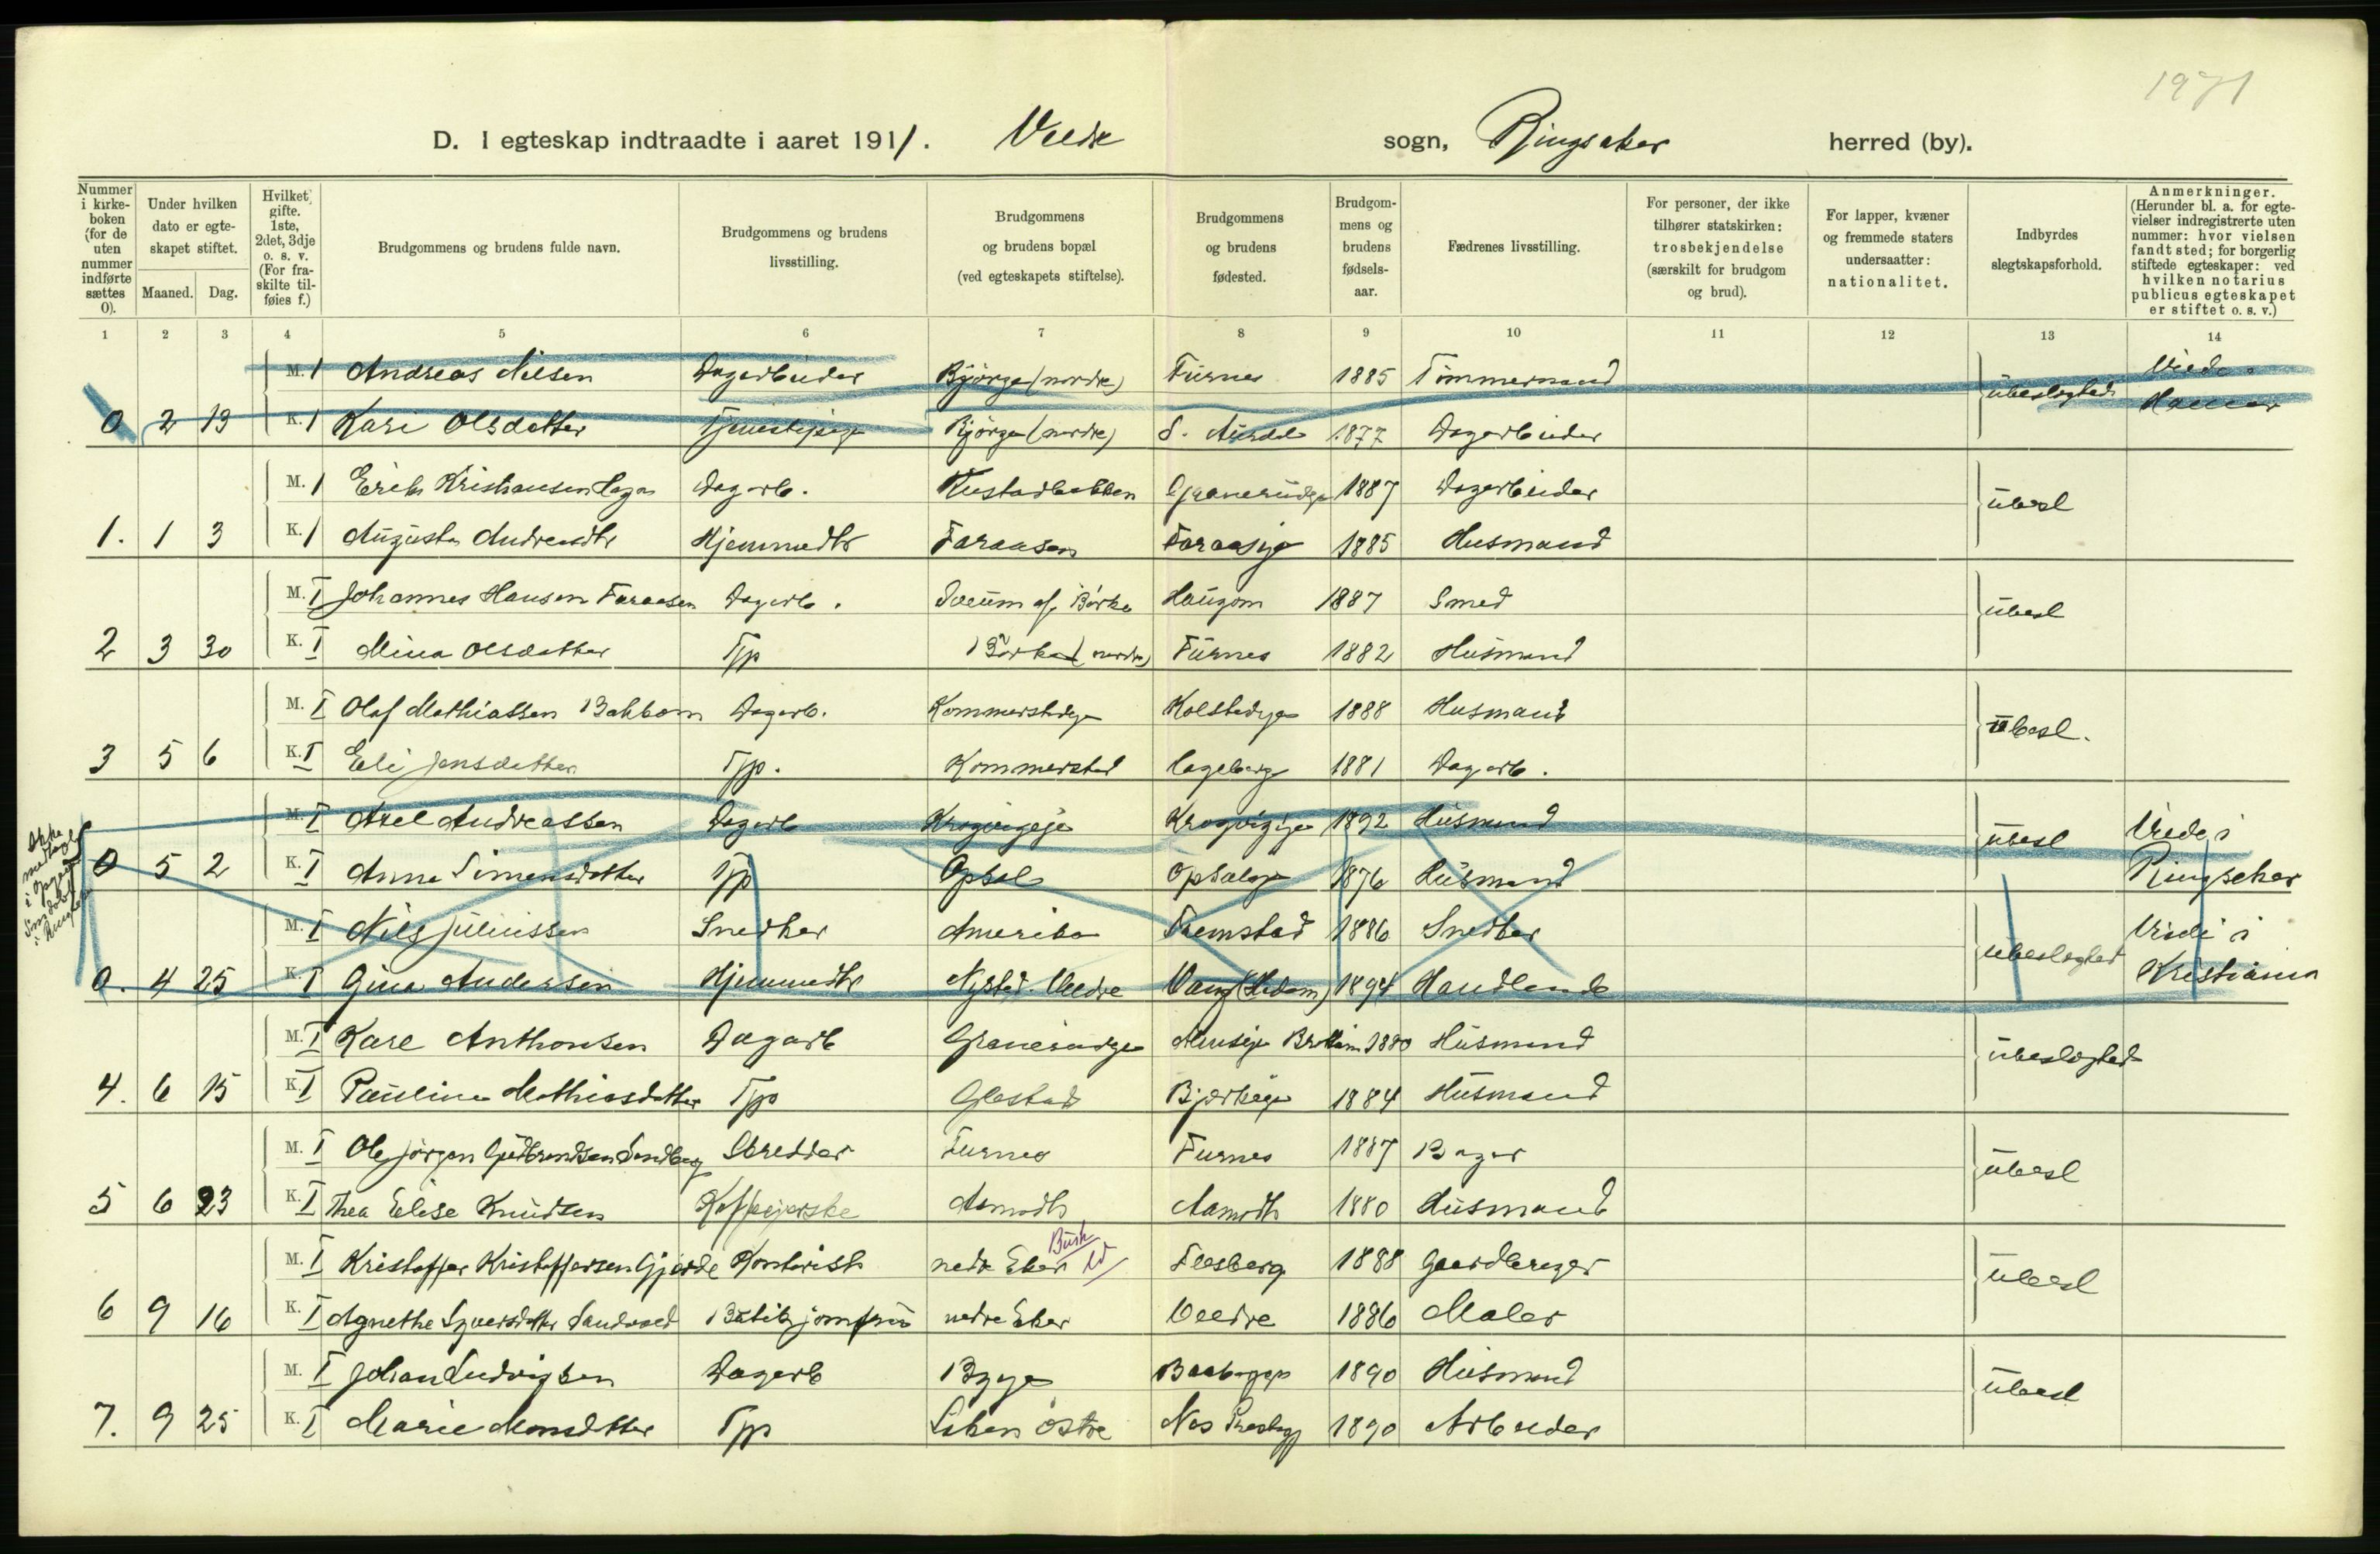 1971
D. I egteskap indtraadte i aaret 1911. Veldre sogn, Ringsaker herred (by).
Nummer i kirkeboken (for de uten nummer indførte sættes 0).
Under hvilken dato er egteskapet stiftet.
Maaned. Dag.
Hvilket gifte. 1ste, 2det, 3dje o. s. v. (For fraskilte tilføies f.)
Brudgommens og brudens fulde navn.
Brudgommens og brudens livsstilling.
Brudgommens og brudens bopæl (ved egteskapets stiftelse).
Brudgommens og brudens fødested.
Brudgommens og brudens fødselsaar.
Fædrenes livsstilling.
For personer, der ikke tilhører statskirken: trosbekjendelse (særskilt for brudgom og brud).
For lapper, kvæner og fremmede staters undersaatter: nationalitet.
Indbyrdes slegtskapsforhold.
Anmerkninger. (Herunder bl. a. for egtevielser indregistrerte uten nummer: hvor vielsen fandt sted; for borgerlig stiftede egteskaper: ved hvilken notarius publicus egteskapet er stiftet o. s. v.)
1 2 3 4 5 6 7 8 9 10 11 12 13 14
M. 1 Andreas Nilsen Dagarbeider Björge (nordre) Furnes 1885 Tømmermand ubeslegted Viede
0 2 13 K. 1 Kari Olsdatter Tjenestepige Björge (nordre) S. Aurdal 1877 Dagarbeider Hamar
M. 1 Erik Kristiansen Hagen Dagarb. 1887 Dagarbeider ubesl
1. 1 3 K. 1 Augusta Andreasdtr Hjemmedtr Faraasen 1885 Husmand
M. I Johannes Hansen Faraasen Dagarb. Haugom 1887 Smed ubesl
2 3 30 K. I Mina Olsdatter Tjp Börke (nordre) Furnes 1882 Husmand
M. I Olaf Mathiassen Bakbom Dagarb. Kommerstadeje Kolstadeje 1888 Husmand ubesl.
3 5 6 K. I Eli Jensdatter Tjp. Kommerstad 1881 Dagarb.
M. I Axel Andreassen Dagarb Krogvigeje Krogvigeje 1892 Husmand ubesl Viede i
0 5 2 K. I Anne Simensdatter Tjp Opsal Opsaleje 1876 Husmand Ringsaker
M. I Nils Juliussen Snedker Amerika 1886 Snedker ubeslegted Viede i
0. 4 25 K. I Gina Andersen Hjemmedtr Nystad. Veldre Vang (Hedem) 1894 Handlende Kristiania
M. I Kare Anthonsen Dagarb 1880 Husmand ubeslegted
4. 6 15 K. I Pauline Mathiasdatter Tjp Glestad 1884 Husmand
M. I Ole Jørgen Gudbrandsen Sandberg Skredder Furnes Furnes 1887 Bager ubesl
5 6 23 K. I Thea Elise Knudsen Aasmodt Aasmodt 1880 Husmand
M. I Kristoffer Kristoffersen Gjørde Kontorist nedre Eker Busk 1888 Gaardbruger ubesl
6 9 16 K. I Agnethe Syversdatter Sandvoed Butikjomfru nedre Eker Veldre 1886 Maler
M. I Johan Ludvigsen Dagarb 1890 Husmand ubesl
7. 9 25 K. I Marie Monsdatter Tjp östre Nes 1890 Arbeider